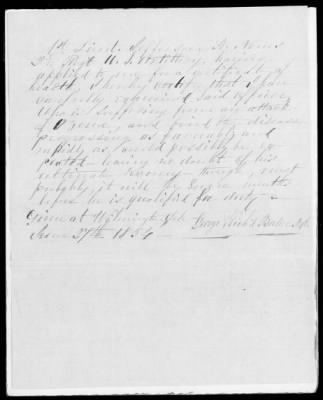 1st Lieut. Jefferson H. Nones
2d Regt U. S. Artillery, having
applied to me for a certificate of
health, I hereby certify, that I have
carefully examined said officer
that he is suffering from an attack
of and found the disease
progressing as favorably and
rapidly as could possibly be ex-
pected leaving no doubt of his
ultimate recovery - though, most
probably, it will be some months
before he is qualified for duty -
Given at Wilmington Del.
June 27th 1854